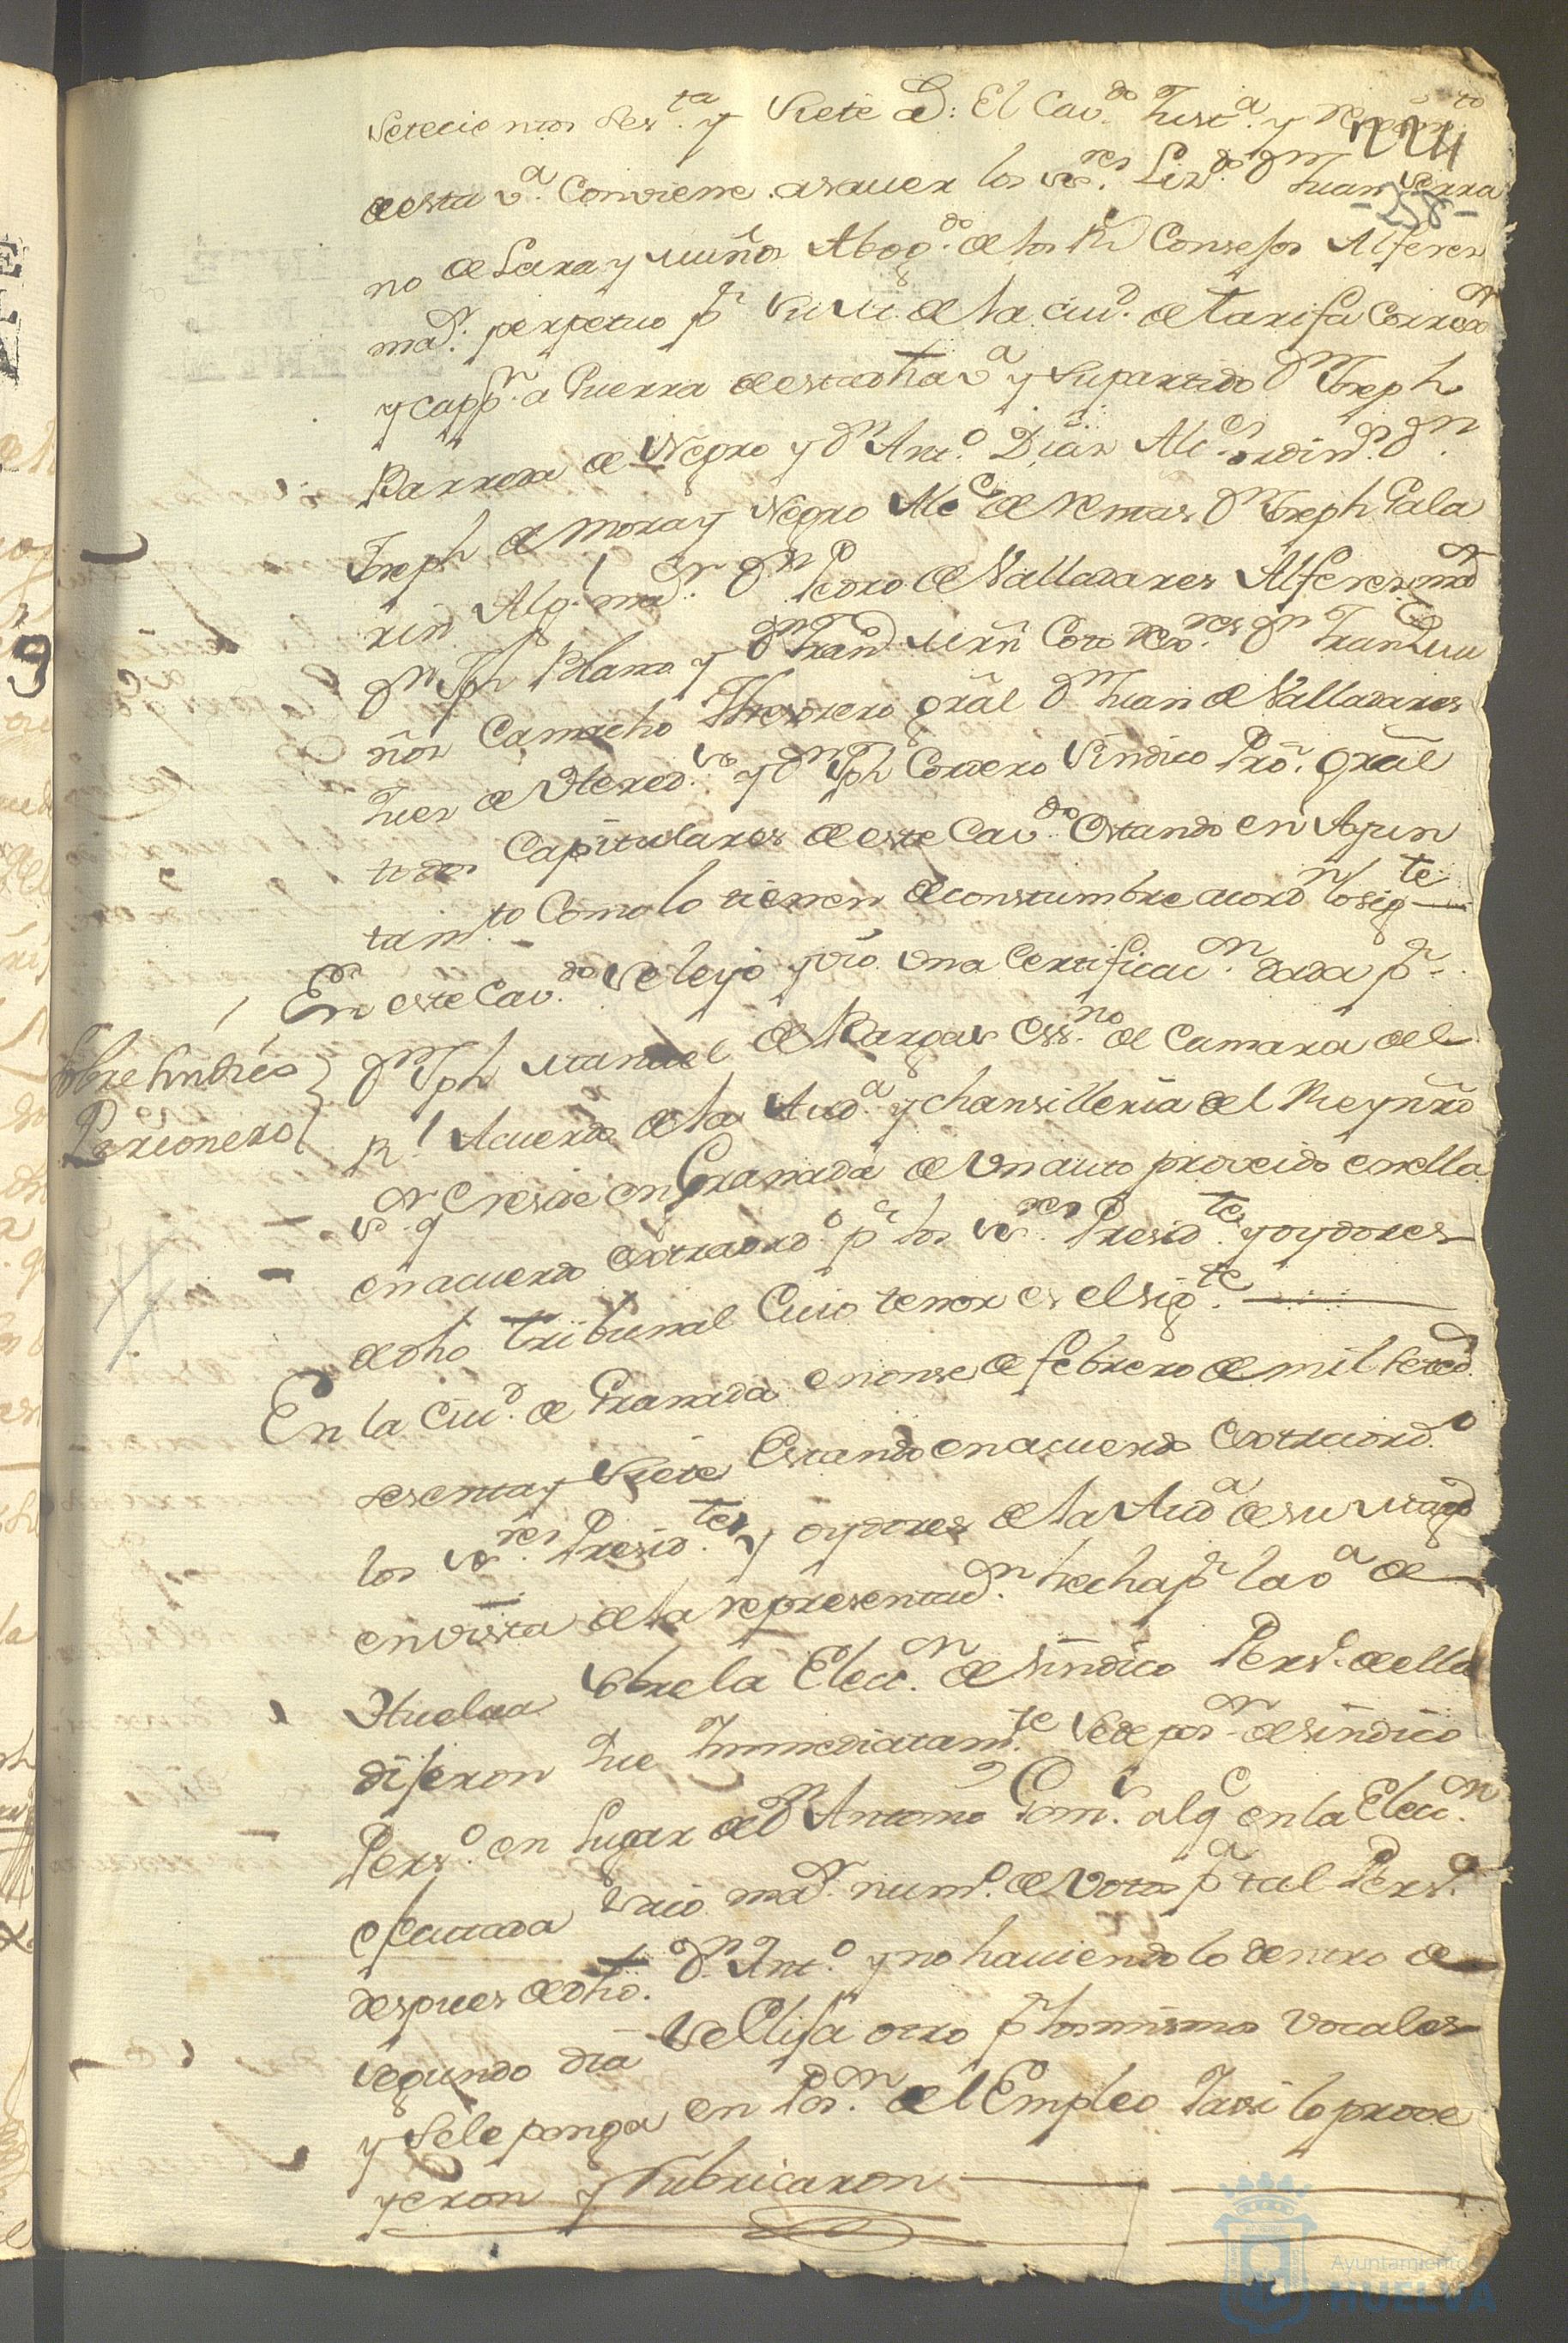 setecientos ses.ta y siete a.s: El Cav.do Just.a y
224
de esta v.a Conviene asaver los ss.res Liz.do D.n Juan Serra
-258-
no de Lara y Muños Abog.do de los R.s Consejos Alferes
ma.r perpetuo p.r su M. de la ciu.d de tarifa Correx.or
y capp.n a Guerra de esta dha v.a y su partido D.n Joseph
Barrera de Negro y D.n Ant.o Dias Alc.es ordin.s D.n
Joseph de Mora y Negro Alc.e de rentas D.n Joseph Gala
rin Alg.l ma.r D.n Pedro de Valladares Alferes ma.or
D.n Jph Blanco y D.n Fran.co Mrñ Coto Rex.res D.n Fran.co Mu
ños Camacho Thesorero grãl D.n Juan de Valladares
Jues de Hered.s y D.n Jph Cordero Sindico Prõ. grãl
todos Capitulares de este Cav.do Estando en Ayun
tam.to Como lo tienen de constumbre acord.n lo sig.te
En este Cav.do se leyo y vio una Certificac.n dada p.r
Sobre Sindico
Perzonero
D.n Jph Manuel de Bargas Ess.no de Camara del
R.l Acuerdo de la Aud.a y chansilleria del Rey nrõ
s.or q reside en Granada de un auto proveido en ella
en acuerdo extraord.o p.r los ss.res Presid.tes y oydores
de dho tribunal Cuio tenor es el sig.te
En la Ciu.d de Granada en onse de febrero de mil setec.s
sesenta y siete Estando en acuerdo Extraord.o
los ss.res Presid.tes y oydores de la Aud.a de su Mag.d
en vista de la representac.n hecha p.r la v.a de
Huelva sobre la Elec.n de Sindico Pers.o de ella
dijeron Que Immediatam.te se de pos.on de sindico
Pers.o en Lugar de D.n Antonio Gom.s al q en la Elec.n
efectuada saco ma.r num.o de votos p.a tal Pers.o
despues de dho. D.n Ant.o y no haviendolo dentro de
segundo dia se Elija otro p.r los mismos vocales
y se le ponga en Pos.on del Empleo Y assi lo prove
yeron y Rubricaron
Ayuntamiento
HUELVA